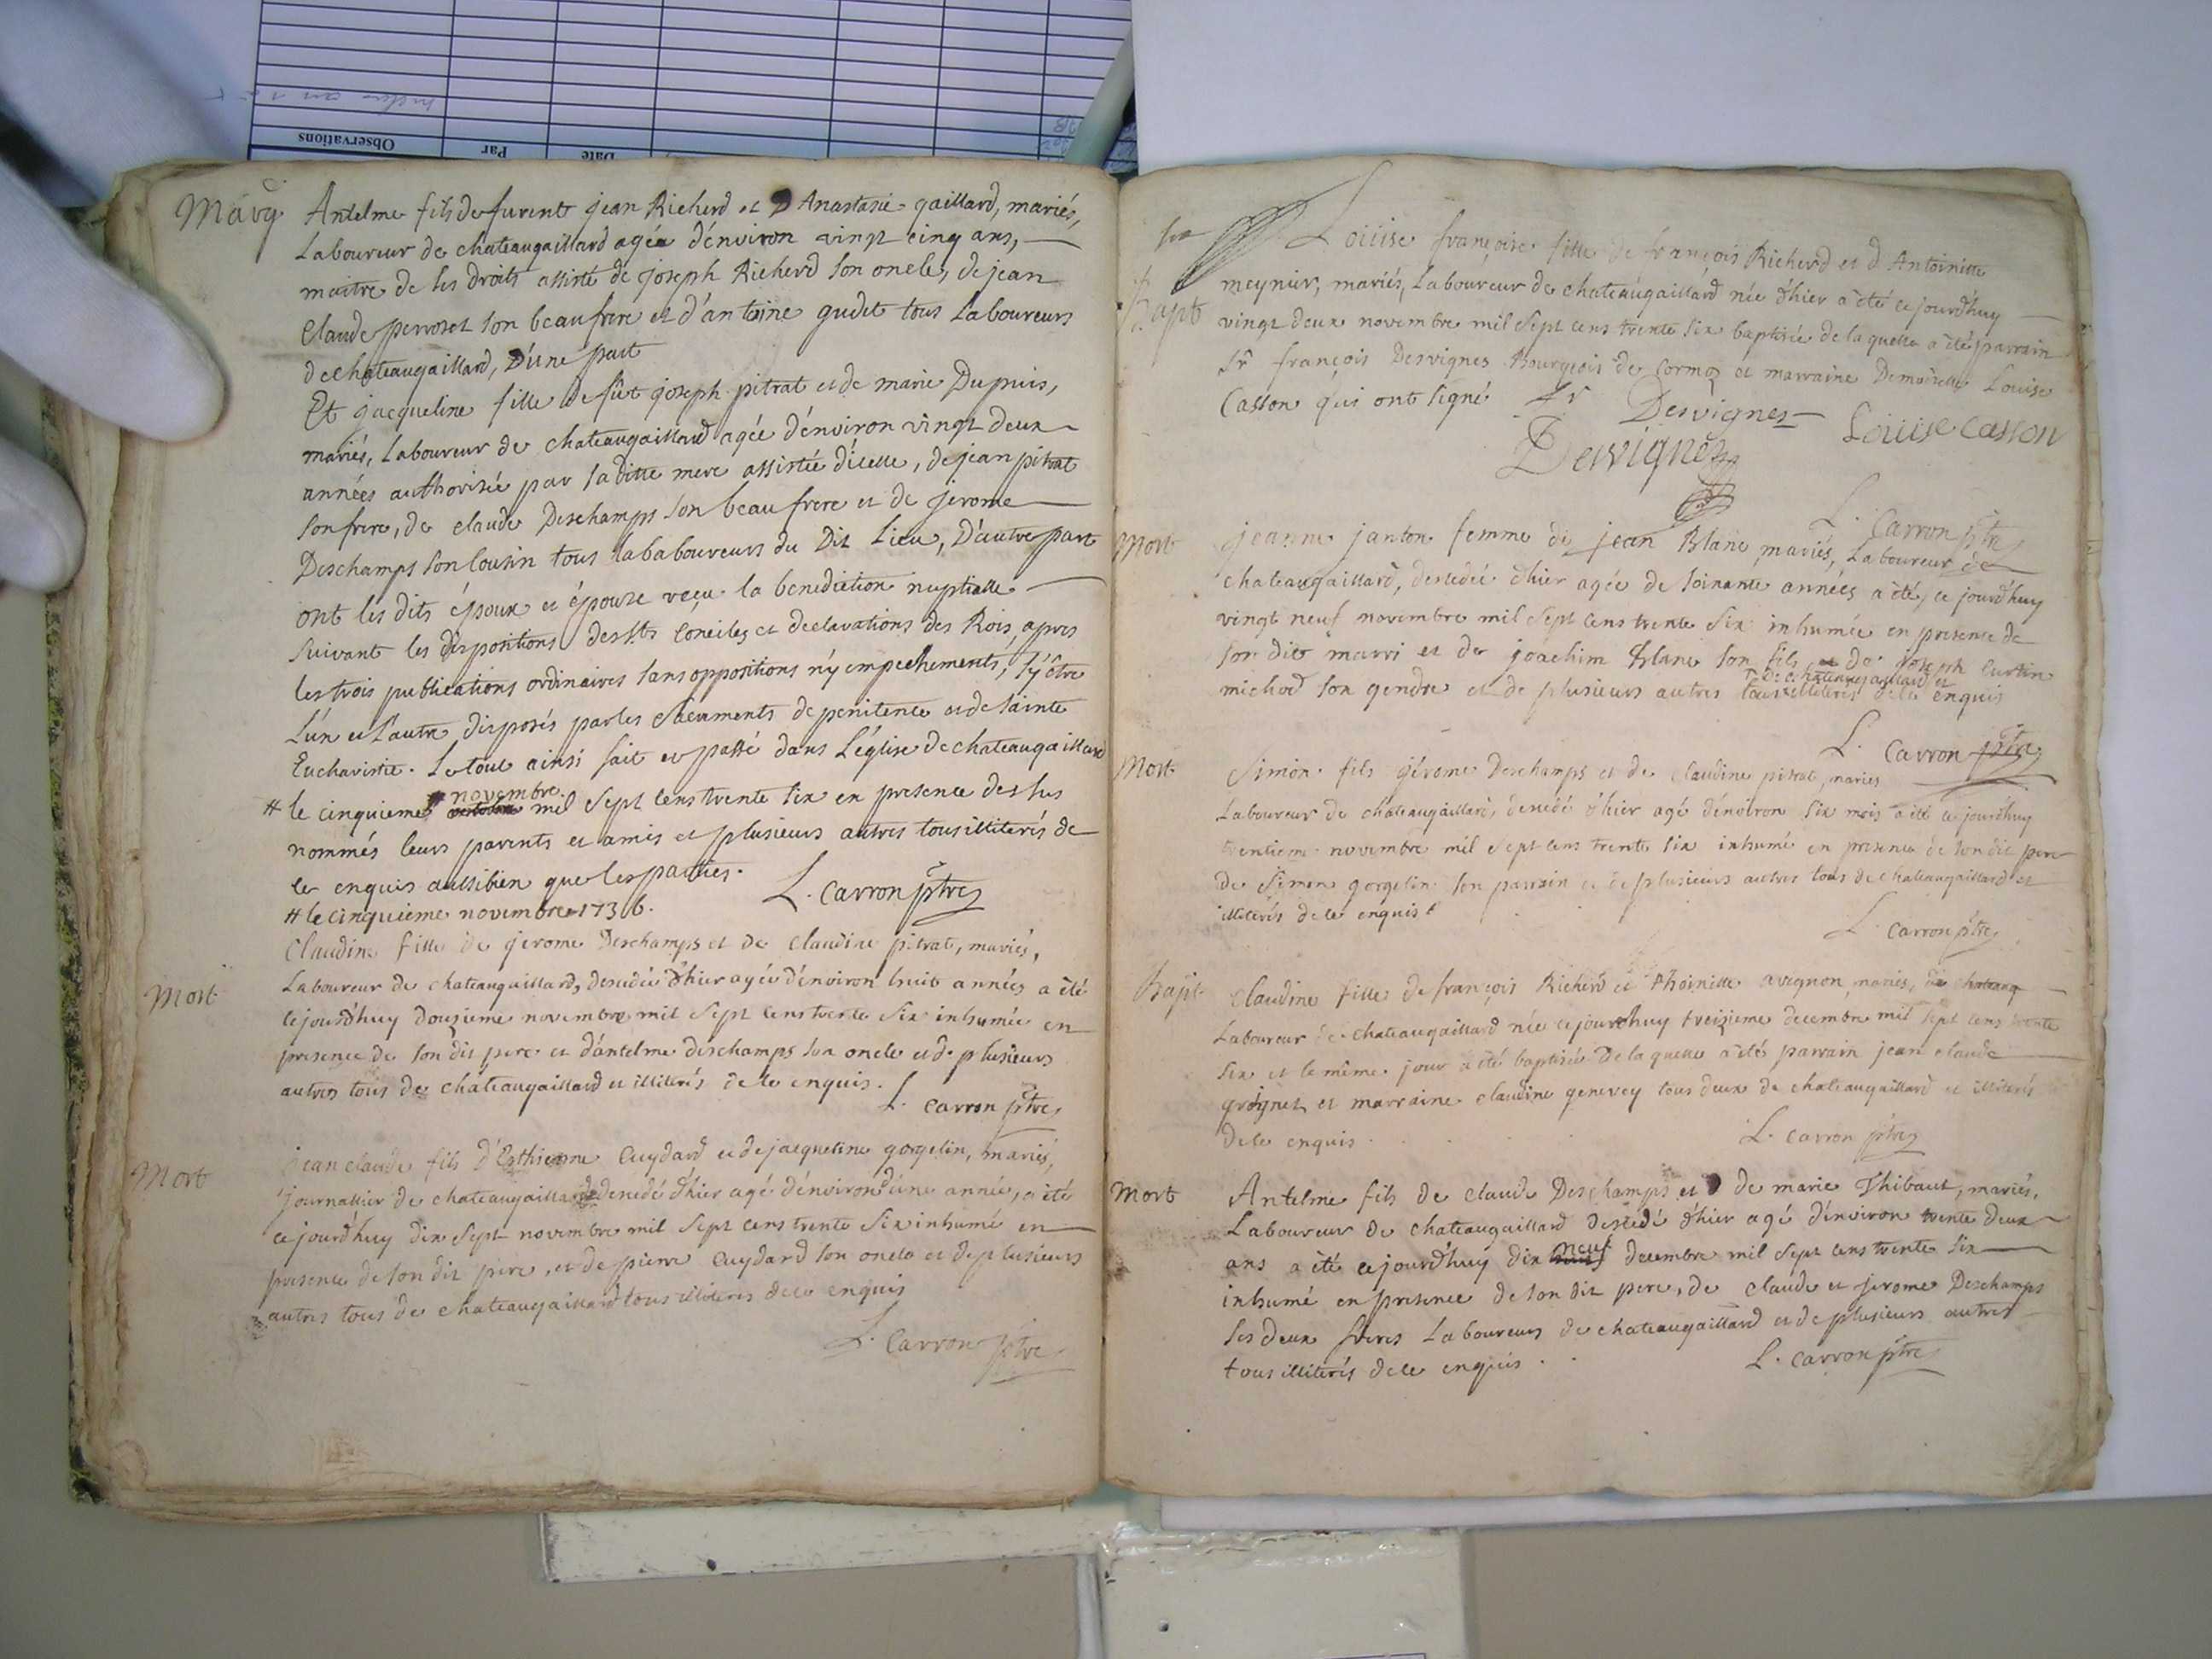 Observations
Par
Date
Mâry
Antelme fils de furent jean Richerd et D Anastasie gaillard, mariés,
Laboureur de chateaugaillard agée d'énviron vingt cinq ans,
maitre de ses droits assisté de joseph Richerd son oncle, de jean
Claude perroset son beaufrere et d'antoine gudet tous Laboureurs
de chateaugaillard, D'une part
Et jacqueline fille de fût joseph pitrat et de marie Dupuis,
mariés, Laboureur de chateaugaillard agée d'énviron vingt deux
années authorisée par sa ditte mere assistée d'icelle, de jean pitrat
son frere, de claude Deschamps son beau frere et de jerome
Deschamps son Cousin tous lababoureurs du Dit Lieu, D'autre part
ont les dits époux et épouze reçu la benediction nuptialle
suivant les dispositions des Sts Conciles et declarations des Rois, apres
les trois publications ordinaires sans oppositions n'y empechements, s'y être
L'un et L'autre disposés par les sacrements de penitence et de sainte
Eucharistie. Le tout ainsi fait et passé dans L'église de chateaugaillard
# le cinquieme novembre mil sept cens trente six en presence des sus
nommés leurs parents et amis et plusieurs autres tous illiterés de
ce enquis aussibien que les parties.
L. Carron ptre
# le cinquieme novembre 1736.
Mort
Claudine fille de jerome Deschamps et de claudine pitrat, mariés,
Laboureur de chateaugaillard, decedée d'hier agée d'énviron huit années a été
cejourd'huy douzieme novembre mil sept cens trente six inhumée en
presence de son dit pere et d'antelme deschamps son oncle et de plusieurs
autres tous de chateaugaillard et illiterés de ce enquis.
L. carron ptre
Mort
jean claude fils d'Esthienne Cuydard et de jacqueline gorgelin, mariés,
journallier de chateaugaillard decedé d'hier agé d'énviron d'une année, a été
cejourd'huy dix sept novembre mil sept cens trente six inhumé en
presence de son dit pere, et de pierre Cuydard son oncle et de plusieurs
autres tous de chateaugaillard tous illiterés de ce enquis
L. Carron ptre
Bapt
Loüise françoise fille de françois Richerd et d Antoinette
meynier, mariés, Laboureur de chateaugaillard née d'hier a été cejourd'huy
vingt deux novembre mil sept cens trente six baptisée de laquelle a été parrain
Sr françois Desvignes Bourgeois de Cormoz et marraine Demoiselle Louise
Casson qui ont signé
Desvignes
Louise casson
Desvignes
L. Carron ptre
Mort
jeanne janton femme de jean Blanc mariés, Laboureur de
chateaugaillard, decedée d'hier agée de soixante années a été, ce jourd'huy
vingt neuf novembre mil sept cens trente six inhumée en presence de
son dit marri et de joachim Blanc son fils de joseph Curtin
michod son gendre et de plusieurs autres tous de chateaugaillard et illiterés de ce enquis
L. Carron ptre
Mort
Simon fils gérome Deschamps et de Claudine pitrat, mariés
Laboureur de chateaugaillard, decedé d'hier agé d'énviron six mois a été cejourd'huy
trentieme novembre mil sept cens trente six inhumé en presence de son dit pere
de Simon gorgelin son parrain et de plusieurs autres tous de chateaugaillard et
illiterés de ce enquis
L. carron ptre
Bapt
Claudine fille de françois Richerd et Thoinette avignon mariés,
Laboureur de chateaugaillard née cejourdhuy treizieme decembre mil sept cens trente
six et le même jour a été baptisée de la quelle a été parrain jean claude
groignet et marraine claudine genevey tous deux de chateaugaillard et illiterés
de ce enquis
L. carron ptre
Mort
Antelme fils de claude Deschamps et de marie Thibaut, mariés,
Laboureur de chateaugaillard decedé d'hier agé d'énviron trente deux
ans a été cejourd'huy dix neuf decembre mil sept cens trente six
inhumé en presence de son dit pere, de claude et jerome Deschamps
ses deux freres Laboureurs de chateaugaillard et de plusieurs autres
tous illiterés de ce enquis.
L. carron ptre